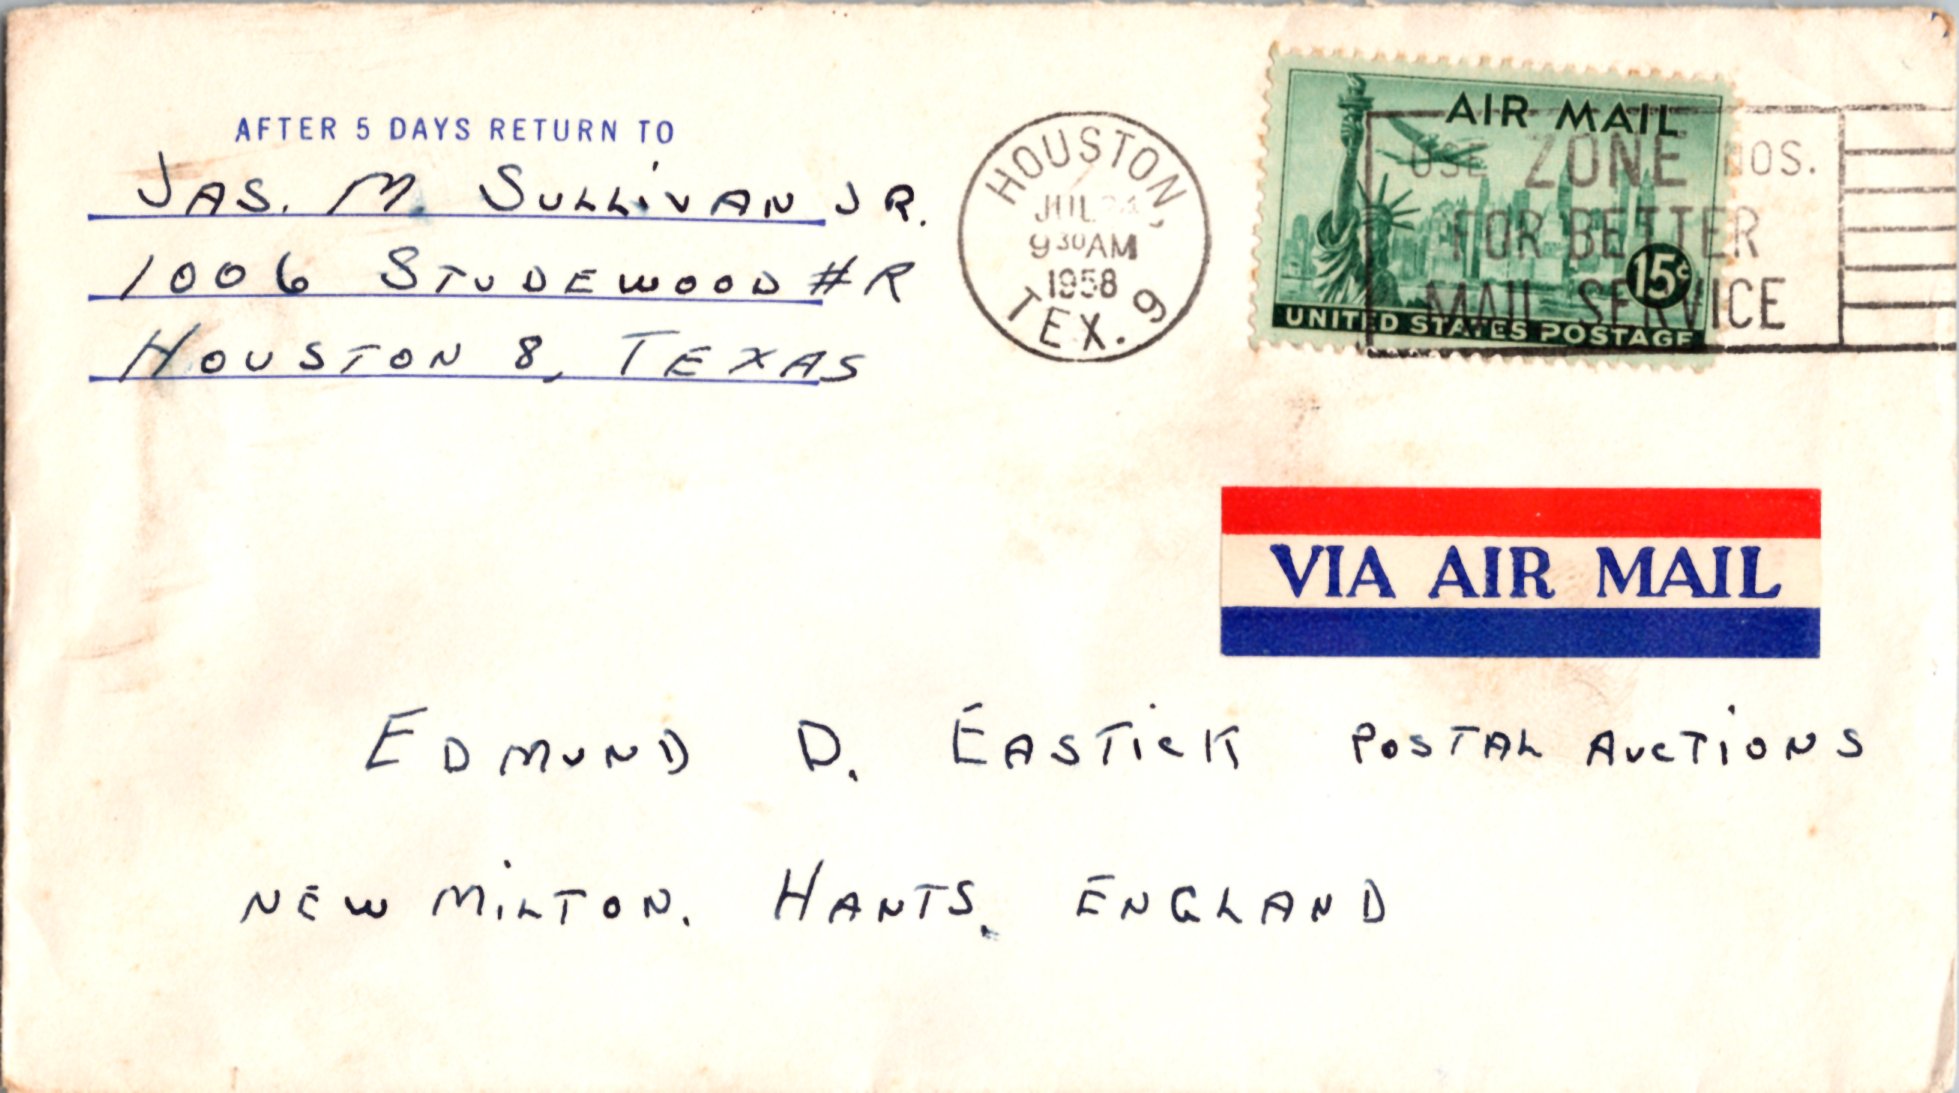 AFTER 5 DAYS RETURN TO
JAS. M. SULLIVAN JR.
1006 STUDEWOOD #R
HOUSTON 8, TEXAS
HOUSTON,
JUL
9 30 AM
1958
TEX. 9
AIR MAIL
15¢
UNITED STATES POSTAGE
USE ZONE NOS.
FOR BETTER
MAIL SERVICE
VIA AIR MAIL
EDMUND D. EASTICK POSTAL AUCTIONS
NEW MILTON. HANTS. ENGLAND